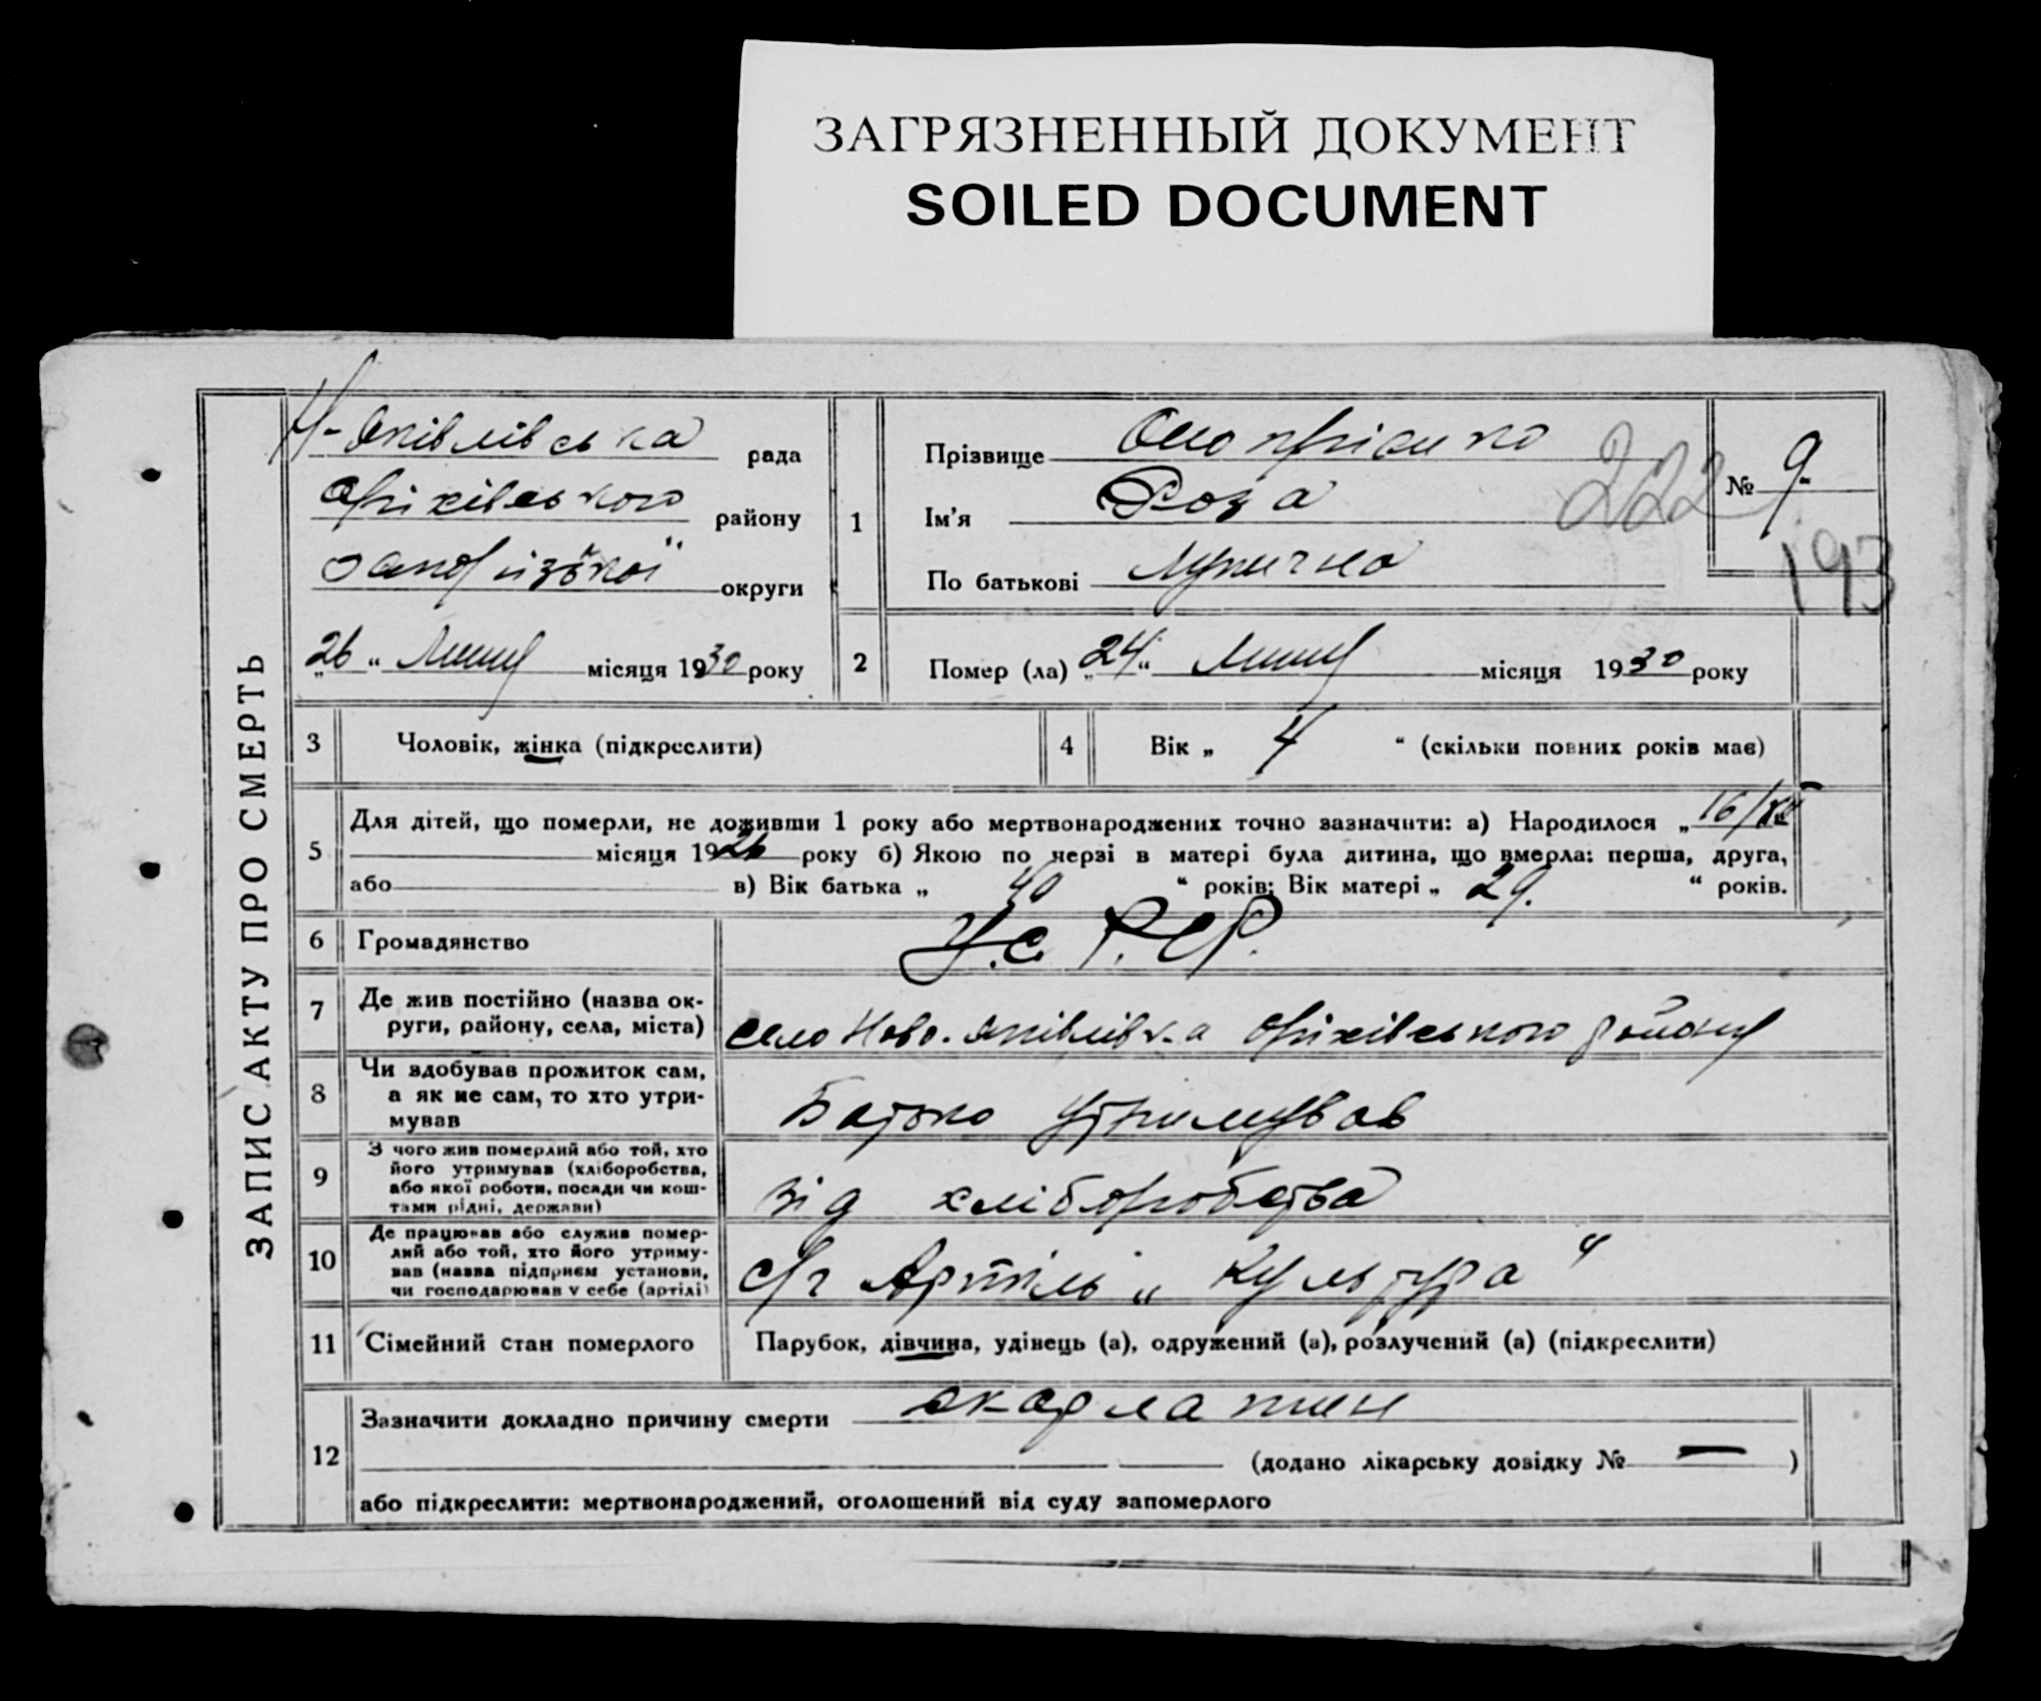 ЗАГРЯЗНЕННЫЙ ДОКУМЕНТ
SOILED DOCUMENT
ЗАПИС АКТУ ПРО СМЕРТЬ
Н-Яківлівська рада
Оріхівського району
Запорізької округи
„26“ Липня місяця 1930 року
1
Прізвище Онопрієнко
Ім’я Роза
По батькові
222
№ 9
193
2
Помер (ла) „24“ Липня місяця 1930 року
3 Чоловік, жінка (підкреслити)
4 Вік „ 4 “ (скільки повних років має)
5 Для дітей, що померли, не доживши 1 року або мертвонароджених точно зазначити: а) Народилося „16/XII
місяця 1926 року б) Якою по черзі в матері була дитина, що вмерла: перша, друга,
або в) Вік батька „ 40 “ років; Вік матері „ 29. “ років.
6 Громадянство У.С.Р.СР.
7 Де жив постійно (назва ок-
руги, району, села, міста)
село Ново-Яківлівка Оріхівського району
8 Чи здобував прожиток сам,
а як не сам, то хто утри-
мував
Батько утримував
9 З чого жив померлий або той, хто
його утримував (хліборобства,
або якої роботи, посади чи кош-
тами рідні, держави)
Від хліборобства
10 Де працював або служив помер-
лий або той, хто його утриму-
вав (назва підприєм установи,
чи господарював у себе (артілі)
с/г Артіль „Культура“
11 Сімейний стан померлого Парубок, дівчина, удівець (а), одружений (а), розлучений (а) (підкреслити)
12 Зазначити докладно причину смерти скарлатин
(додано лікарську довідку № — )
або підкреслити: мертвонароджений, оголошений від суду запомерлого